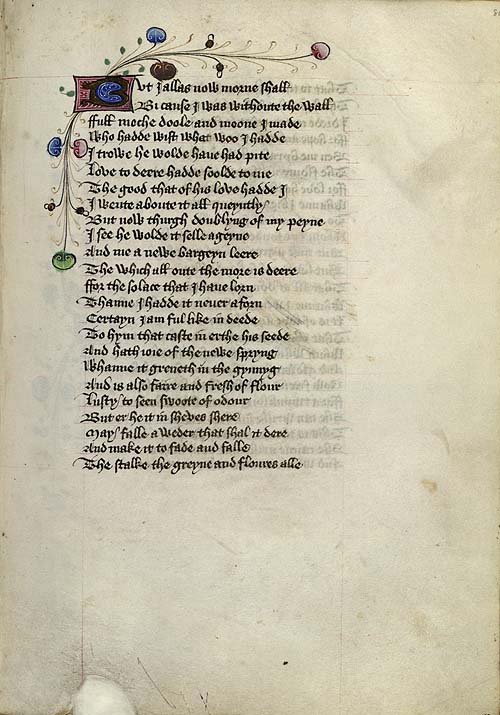 But I allas now morne shall
Bi cause I was withoute the wall
ffull moche doole and moone I made
Who hadde wist what woo I hadde
I trowe he wolde haue had pite
Love to deere hadde soolde to me
The good that of his love hadde I
I wente aboute it all queyntly
But now thurgh doublyng of my peyne
I see he wolde it selle ageyne
And me a newe bargeyn leere
The which all oute the more is deere
ffor the solace that I haue lorn
Thanne I hadde it never aforn
Certayn I am ful like in deede
To hym that caste in erthe his seede
And hath ioie of the newe spryng
Whanne it greneth in the gynnyg
And is also faire and fresh of flour
Lusty to seen swoote of odour
But er he it in sheves shere
May falle a weder that shal it dere
And make it to fade and falle
The stalke the greyne and floures alle